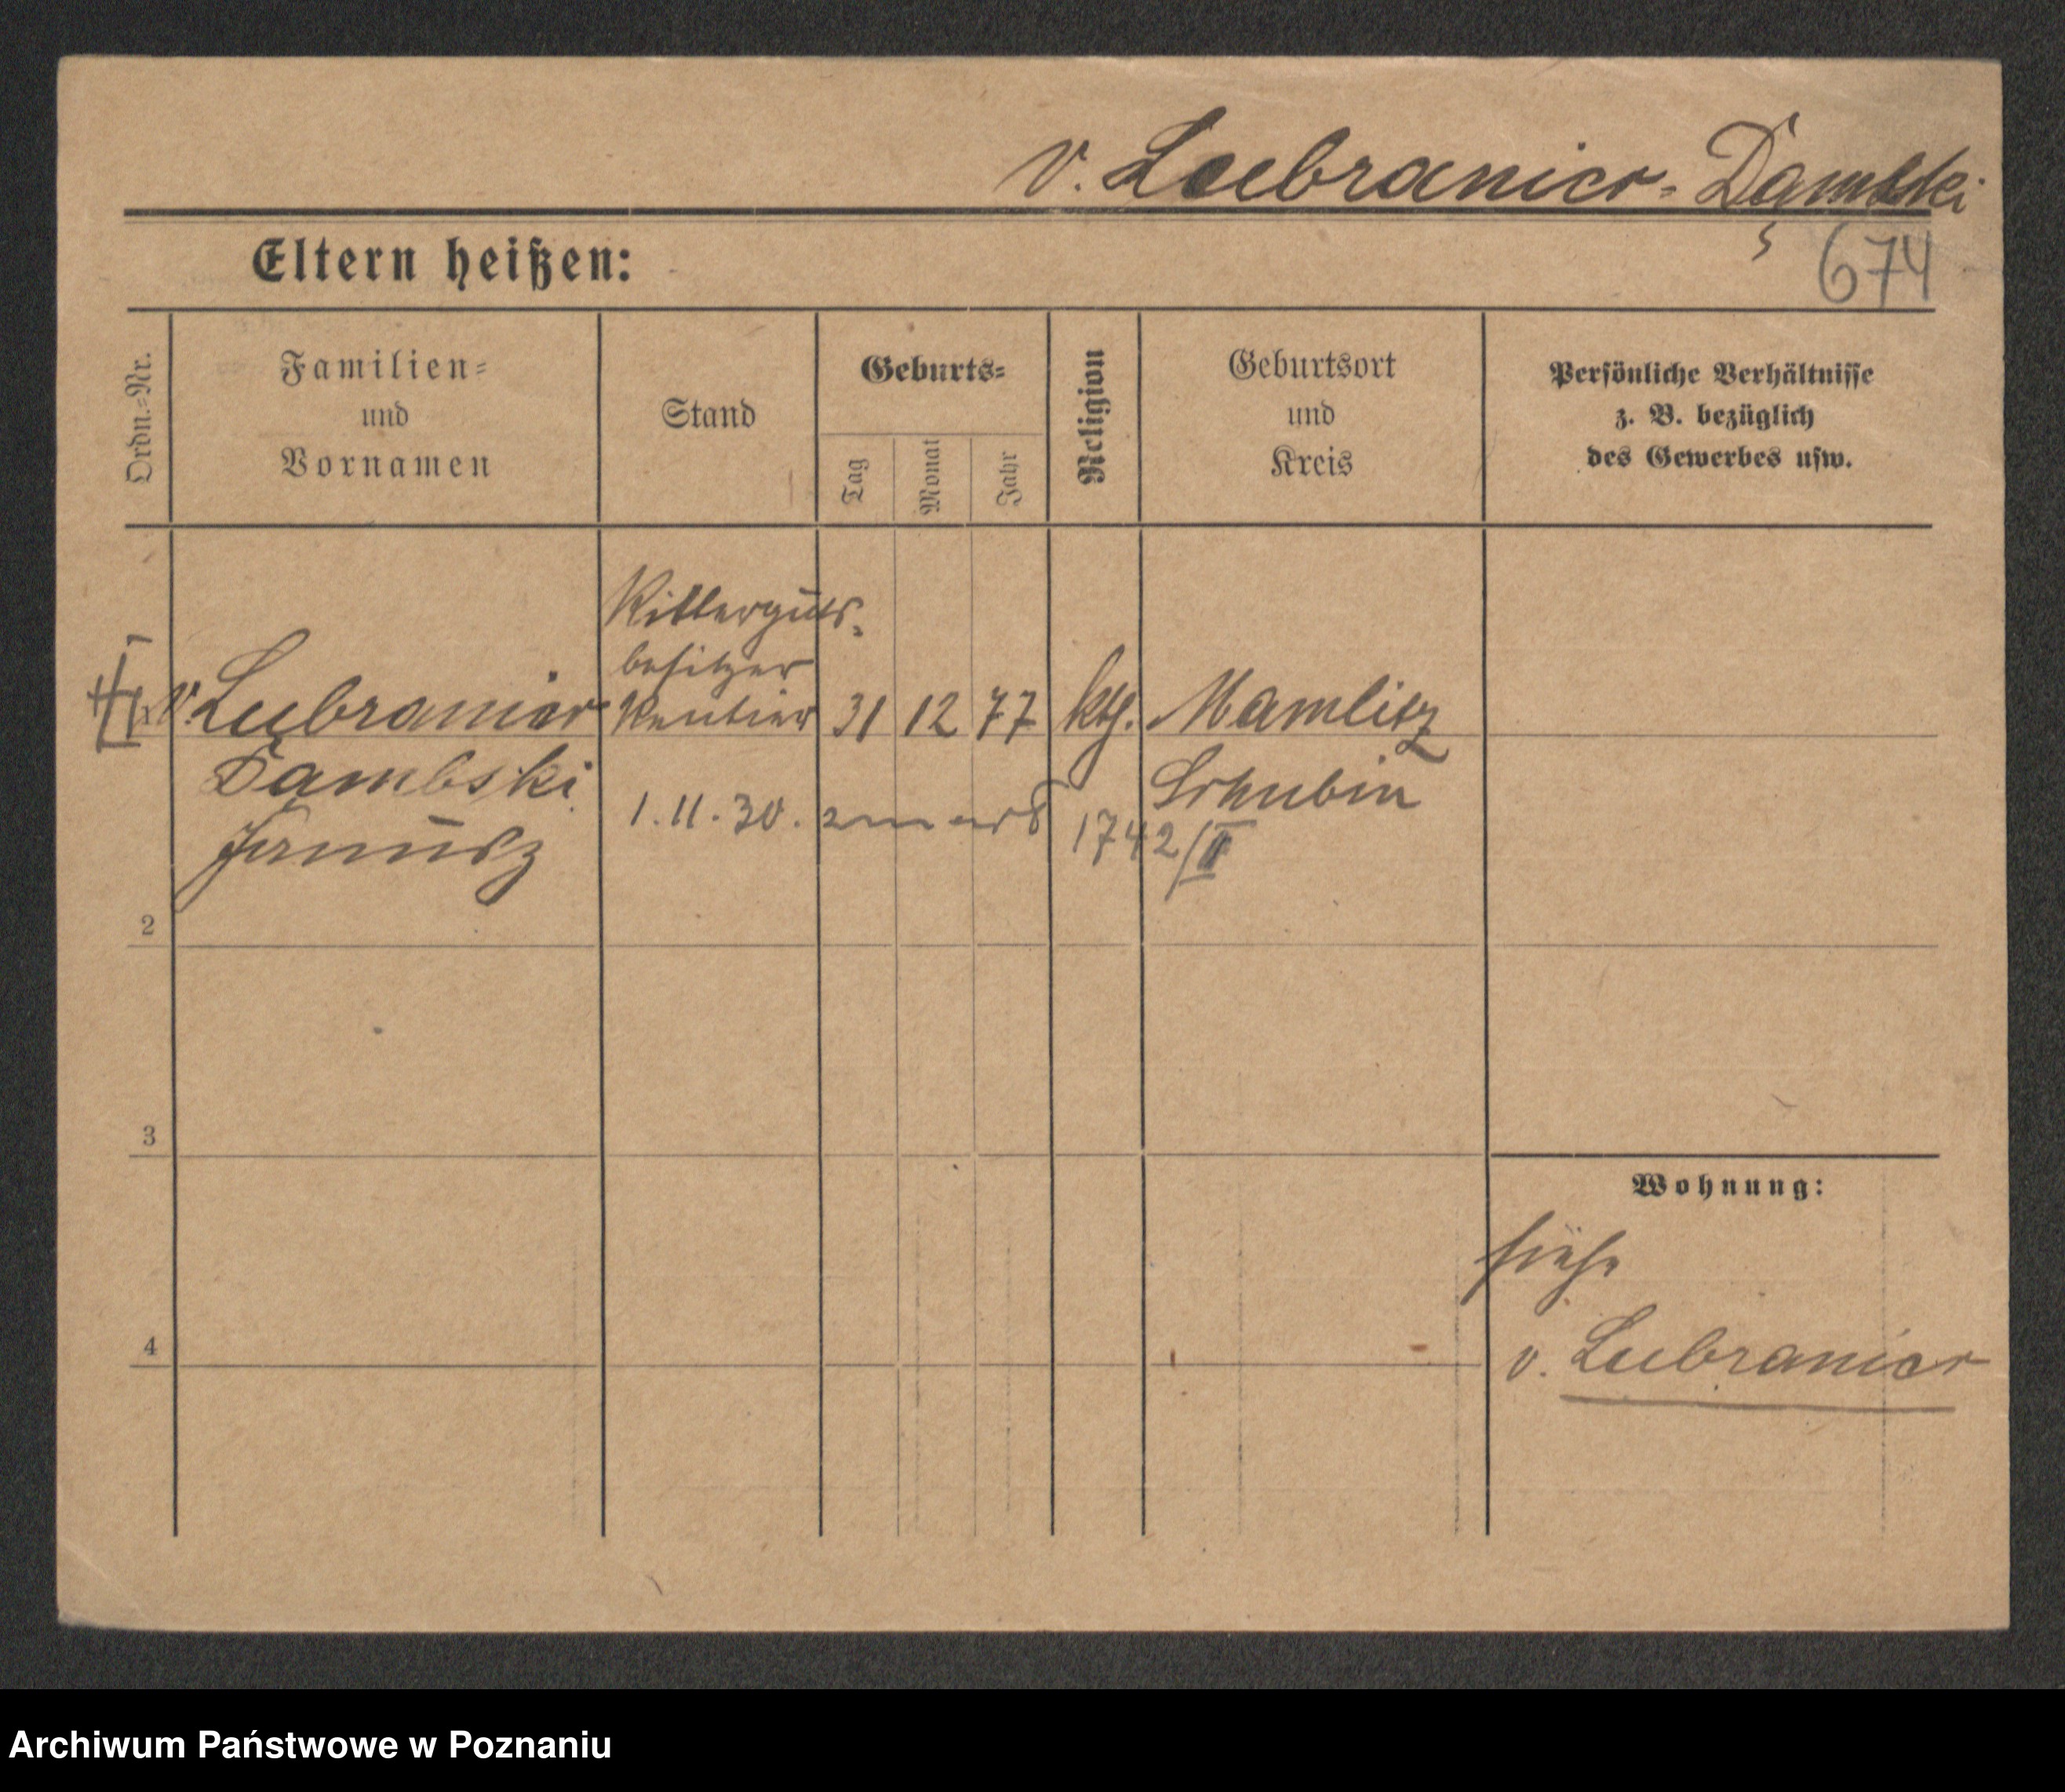 v. Lubranice-Dąmbski
Eltern heißen:
674
Ordn.-Nr.
Familien-
und
Vornamen
Stand
Geburts-
Tag
Monat
Jahr
Religion
Geburtsort
und
Kreis
Persönliche Verhältnisse
z. B. bezüglich
des Gewerbes usw.
Ritterguts-
besitzer
v. Lubranice Rentier 31 12 77 kth. Mamlitz
Dąmbski Schubin
Janusz 1.11.30. zmarł 1742/II
2
3
4
Wohnung:
siehe
v. Lubranice
Archiwum Państwowe w Poznaniu